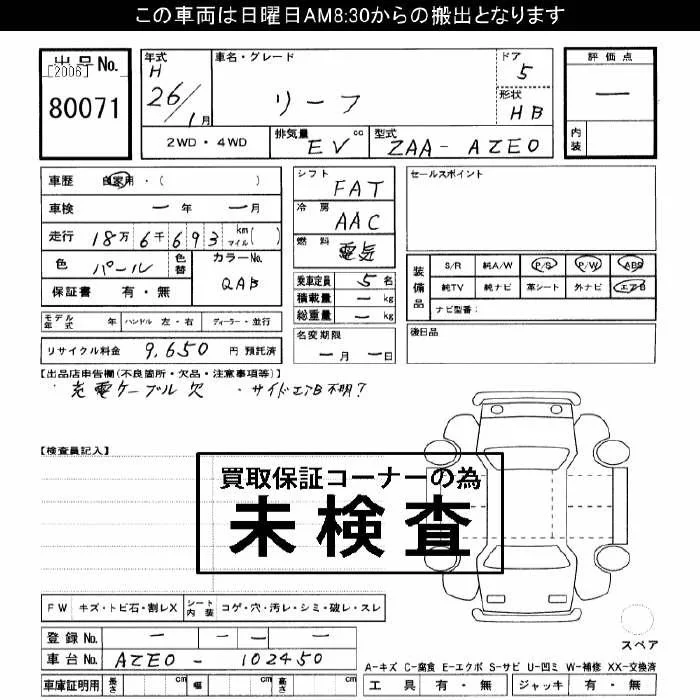 この車両は日曜日AM8:30からの搬出となります
出品No.
[2006]
80071
年式
H
26/1月
車名・グレード
リーフ
ドア
5
形状
HB
評価点
ー
内装
2WD・4WD
排気量
EV cc
型式
ZAA-AZE0
車歴 自家用・( )
車検 ー年 ー月
走行 18万6千693 km マイル( )
色 パール 色替
カラーNo.
QAB
保証書 有・無
シフト
FAT
冷房
AAC
燃料
電気
乗車定員 5名
積載量 ー kg
総重量 ー kg
名変期限
ー月 ー日
セールスポイント
装備品
S/R 純A/W P/S P/W ABS
純TV 純ナビ 革シート 外ナビ エアB
ナビ型番:
後日品
モデル年式 年 ハンドル 左・右 ディーラー・並行
リサイクル料金 9,650 円 預託済
【出品店申告欄(不良箇所・欠品・注意事項等)】
・充電ケーブル欠 ・サイドエアB不明?
【検査員記入】
買取保証コーナーの為
未検査
FW キズ・トビ石・割レX シート内装 コゲ・穴・汚レ・シミ・破レ・スレ
登録No. ー ー ー
車台No. AZE0-102450
車庫証明用 長さ cm 幅 cm 高さ cm
スペア
A-キズ C-腐食 E-エクボ S-サビ U-凹ミ W-補修 XX-交換済
工具 有・無 ジャッキ 有・無